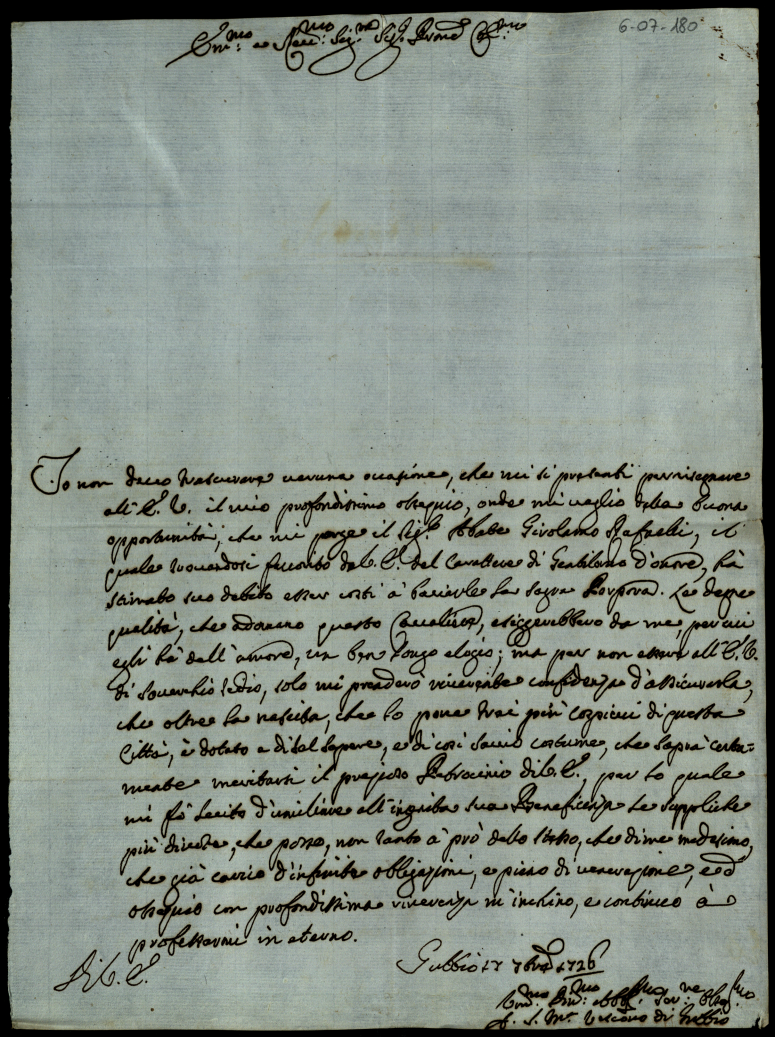 6-07-180
Em.mo e Rev.mo Sig.re Sig.re Pron.e Col.mo
Io non devo trascurare veruna occasione, che mi si presenti per rassegnare
all'E. V. il mio profondissimo ossequio, onde mi vaglio della buona
opportunità, che mi porge il Sig.r Abate Girolamo Rafaelli, il
quale trovandosi favorito da V. E. del Carattere di Gentiluomo d'onore, hà
stimato suo debito esser costì à baciarle la Sagra Porpora. Le degne
qualità, che adornano questo Cavaliere, esiggerebbero da me, per cui
egli hà dell'amore, un ben longo elogio; ma per non essere all'E. V.
di soverchio tedio, solo mi prenderò riverente confidenza d'assicurarla,
che oltre la nascita, che lo pone trai più cospicui di questa
Città, è dotato e di tal sapere, e di così savio costume, che saprà certa-
mente meritarsi il prezioso Patrocinio di V. E., per lo quale
mi fò lecito d'umiliare all'ingenita sua Beneficenza le suppliche
più divote, che posso, non tanto à prò dello stesso, che di me medesimo,
che già carico d'infinite obligazioni, e pieno di venerazione, ed
ossequio con profondissima riverenza m'inchino, e continuo à
professarmi in eterno.
Di V. E.
Gubbio 17 7bre 1726
Um.mo Div.mo Obblig.mo Ser.re Osseq.mo
f. S. M.a Vescovo di Gubbio